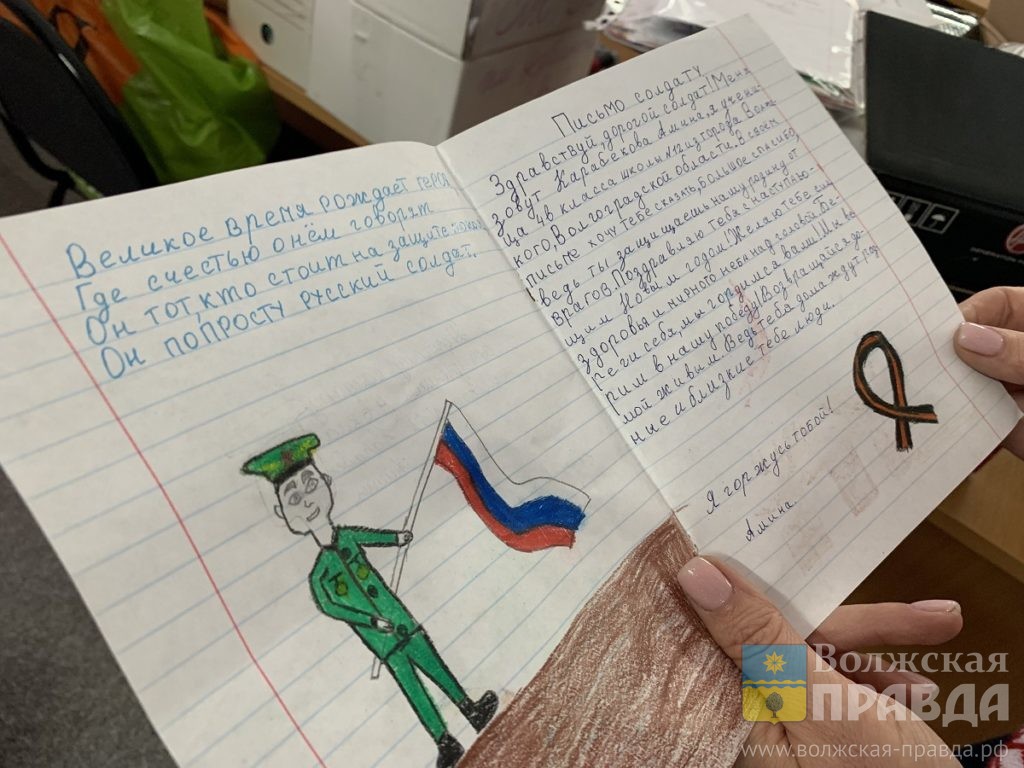 Великое время рождает героя,
Где с честью о нём говорят
Он тот, кто стоит на защите
Он попросту русский солдат.
Письмо солдату
Здравствуй, дорогой солдат! Меня
зовут Карабекова Амина, я учени-
ца 4в класса школы №12 из города Волж-
кого, Волгоградской области. В своём
письме хочу тебе сказать, большое спасибо,
ведь ты защищаешь нашу родину от
врагов. Поздравляю тебя с наступаю-
щим Новым годом! Желаю тебе сил,
здоровья и мирного неба над головой. Бе-
реги себя, мы гордимся вами! Мы ве
рим в нашу победу! Возвращайся до-
мой живым. Ведь тебя дома ждут род
ные и близкие тебе люди.
Я горжусь тобой!
Амина.
Волжская
ПРАВДА
www.волжская-правда.рф